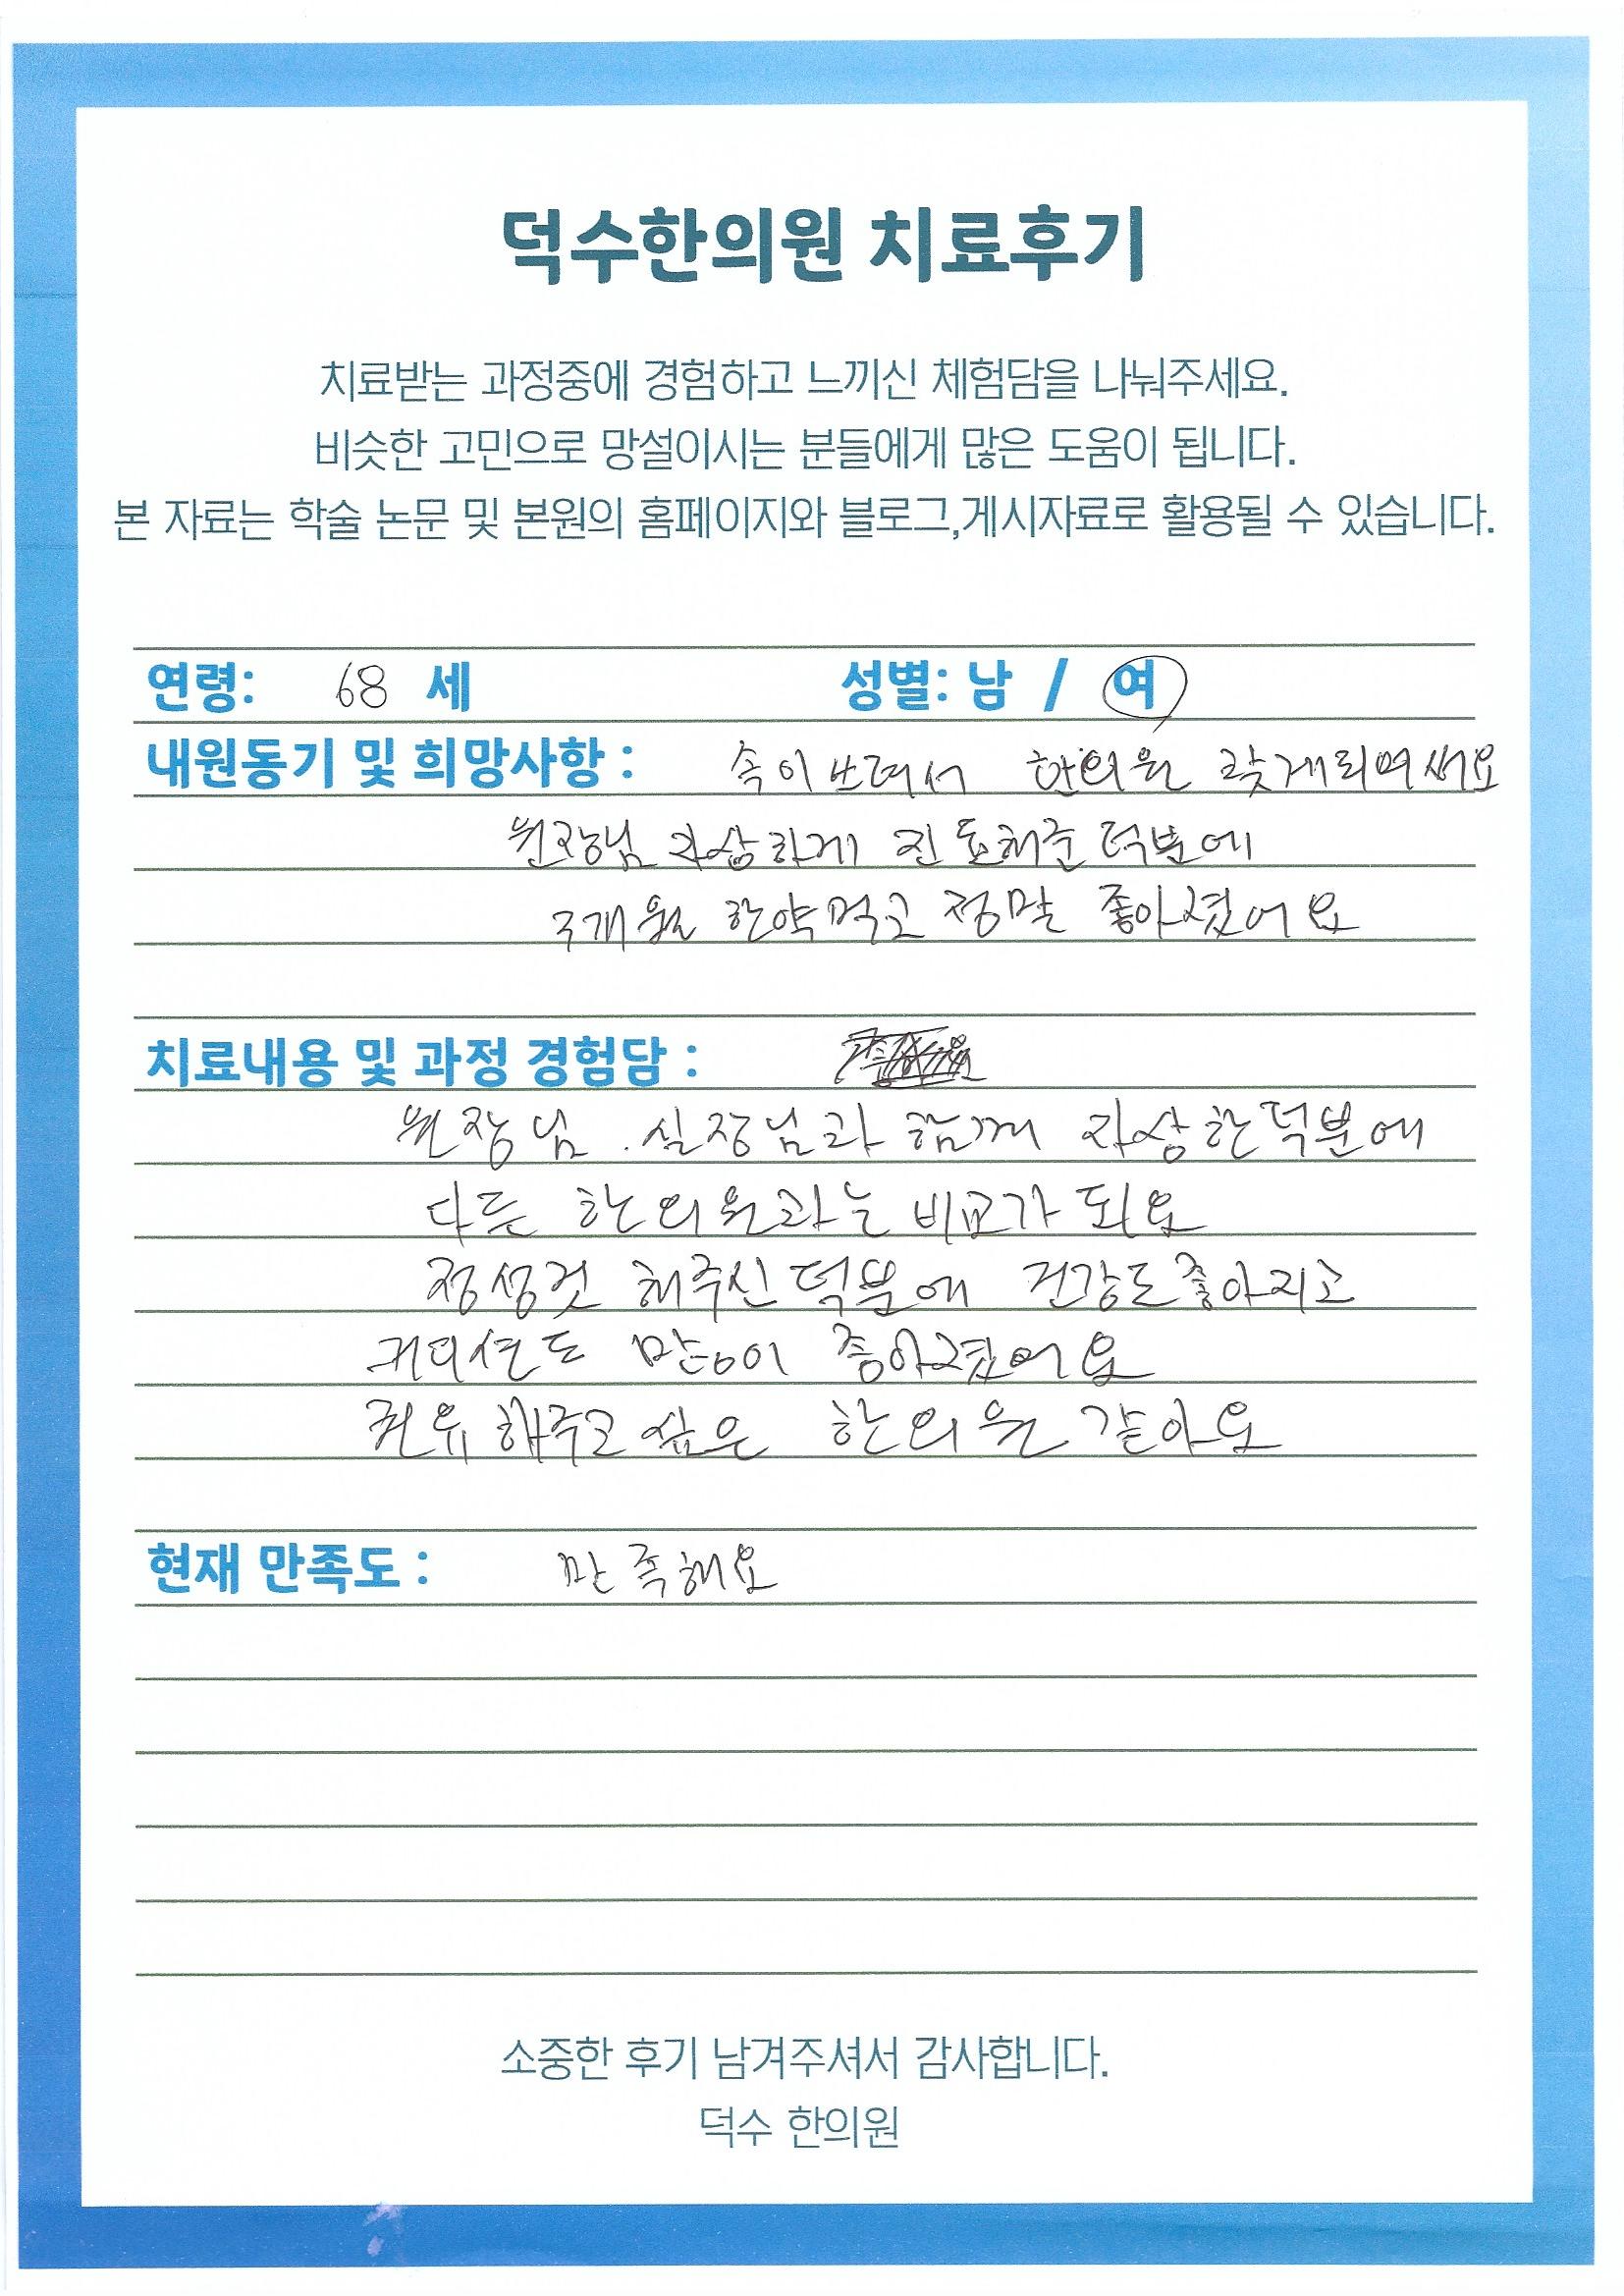 덕수한의원 치료후기
치료받는 과정중에 경험하고 느끼신 체험담을 나눠주세요.
비슷한 고민으로 망설이시는 분들에게 많은 도움이 됩니다.
본 자료는 학술 논문 및 본원의 홈페이지와 블로그,게시자료로 활용될 수 있습니다.
연령: 68 세 성별: 남 / 여
내원동기 및 희망사항 : 속이 쓰려서 한의원 찾게되여써요
원장님 자상하게 진료해준 덕분에
3개월 한약먹고 정말 좋아졌어요
치료내용 및 과정 경험담 :
원장님. 실장님과 함께 자상한덕분에
다른 한의원과는 비교가 되요
정성껏 해주신 덕분에 건강도좋아지고
커디션도 많이 좋아졌어요
권유해주고 싶은 한의원 같아요
현재 만족도 : 만족해요
소중한 후기 남겨주셔서 감사합니다.
덕수 한의원